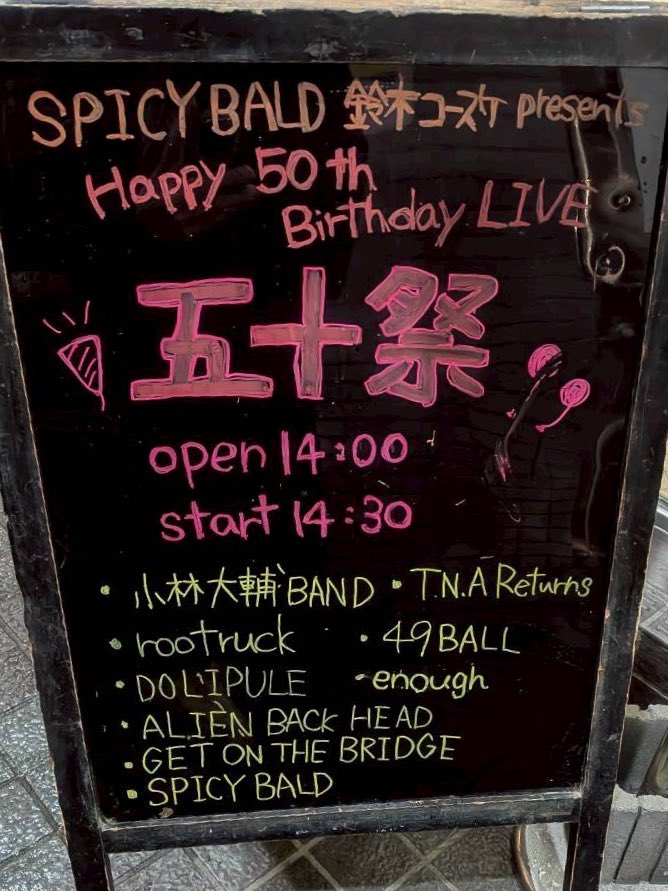 SPICY BALD 鈴木コースケ presents
Happy 50th
Birthday LIVE
五十祭
open 14:00
start 14:30
・小林大輔BAND ・T.N.A Returns
・rootruck ・49BALL
・DOLIPULE ・enough
・ALIEN BACK HEAD
・GET ON THE BRIDGE
・SPICY BALD